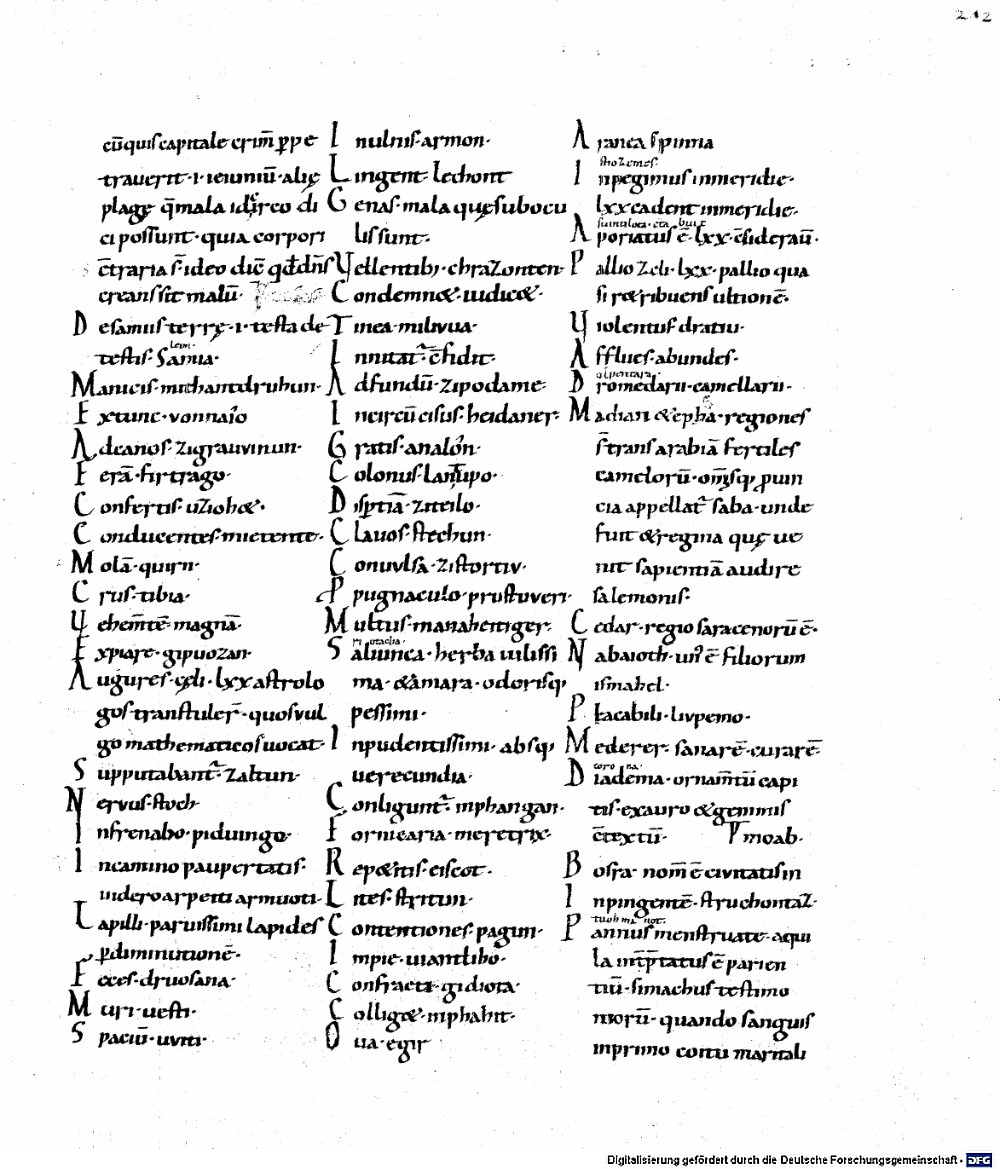 212
cū quis capitale crim̄ ꝑpe
trauerit · i · ieiuniū · alię
plagę q̄ mala idcirco di
ci possunt · quia corpori
c̄traria s̄ · ideo dic̄ qđ dn̄s
creans sit malū ·
D e samus terrę · i · testa de
testis · Samia ·
M anicis · mit hantdruhun ·
E x tunc · vonnaío
A deanos · zigrauvinun ·
F erā · firtrago ·
C onfertis · uziohæ ·
C onducentes · mietente ·
M olā · quirn ·
C rus · tibia ·
U ehem̄tē · magnā ·
E xpiare · gipuozan ·
A ugures · cęli · lxx astrolo
gos transtuler̄ · quos vul
go mathematicos uocat ·
S upputabant · zaltun ·
N eruus · stoch
I nfrenabo · piduingo ·
I n camino paupertatis ·
in dero arpeiti armuoti ·
L apilli · paruissimi lapides
ꝑ diminutionē ·
F eces · druosana ·
M uri · uesti ·
S paciū · uviti ·
I nulnis · armon ·
L ingent · lechont
G enas · mala quę sub ocu
lis sunt ·
U ellentib; · chrazonten ·
C ondemnæ · iudicæ ·
T inea · miliuua ·
I nnitat · c̄fidit ·
A d fundū · zipodame ·
I ncircūcisus · heidaner ·
G ratis · analón ·
C olonus · lantpo ·
D isp̄tiā · ziteilo ·
C lauos · stechun ·
C onuulsā · zistortiv ·
P pugnaculo · prustuueri ·
M ultus · manaheitiger ·
S aliunca · herba uilissi
ma · & amara · odorisq;
pessimi ·
I npudentissimi · absq;
uerecundia ·
C onligunt · inphangan ·
F ornicaria · meretrix ·
R epetitis · eiscot ·
L ites · stritun ·
C ontentiones · pagun ·
I mpie · uiantlibo ·
C onfracta · gidiota ·
C olligæ · inphahit ·
O ua · eigir
A ranea spinna
stozemes ·
I npegimus in meridie ·
lxx cadent in meridie ·
A poriatus ē · lxx · c̄siderau ·
P allio zeli · lxx · pallio qua
si retribuens ultionē ·
U iolentus dratiu ·
A fflues · abundes ·
olpentara ·
D romedarii · camellarii ·
M adian & epha · regiones
s̄ trans arabiā fertiles
camelorū · om̄isq; ꝓuin
cia appellat saba · unde
fuit & regina quę ue
nit sapientiā audire
salemonis ·
C edar · regio saracenorū ē ·
N abaioth · un̄ ē filiorum
ismahel ·
P lacabili · livpemo ·
M ederer · sanarē · curarē
corona
D iadema · ornam̄tū capi
tis · ex auro & gemmis
c̄textū · moab ·
B osra · nom̄ ē ciuitatis in
I npingentē · struchontaz ·
P annus menstruate · aqui
la int̄p̄tatus ē parien
tiū · simachus testimo
niorū · quando sanguis
in primo coitu maritali
Digitalisierung gefördert durch die Deutsche Forschungsgemeinschaft - DFG